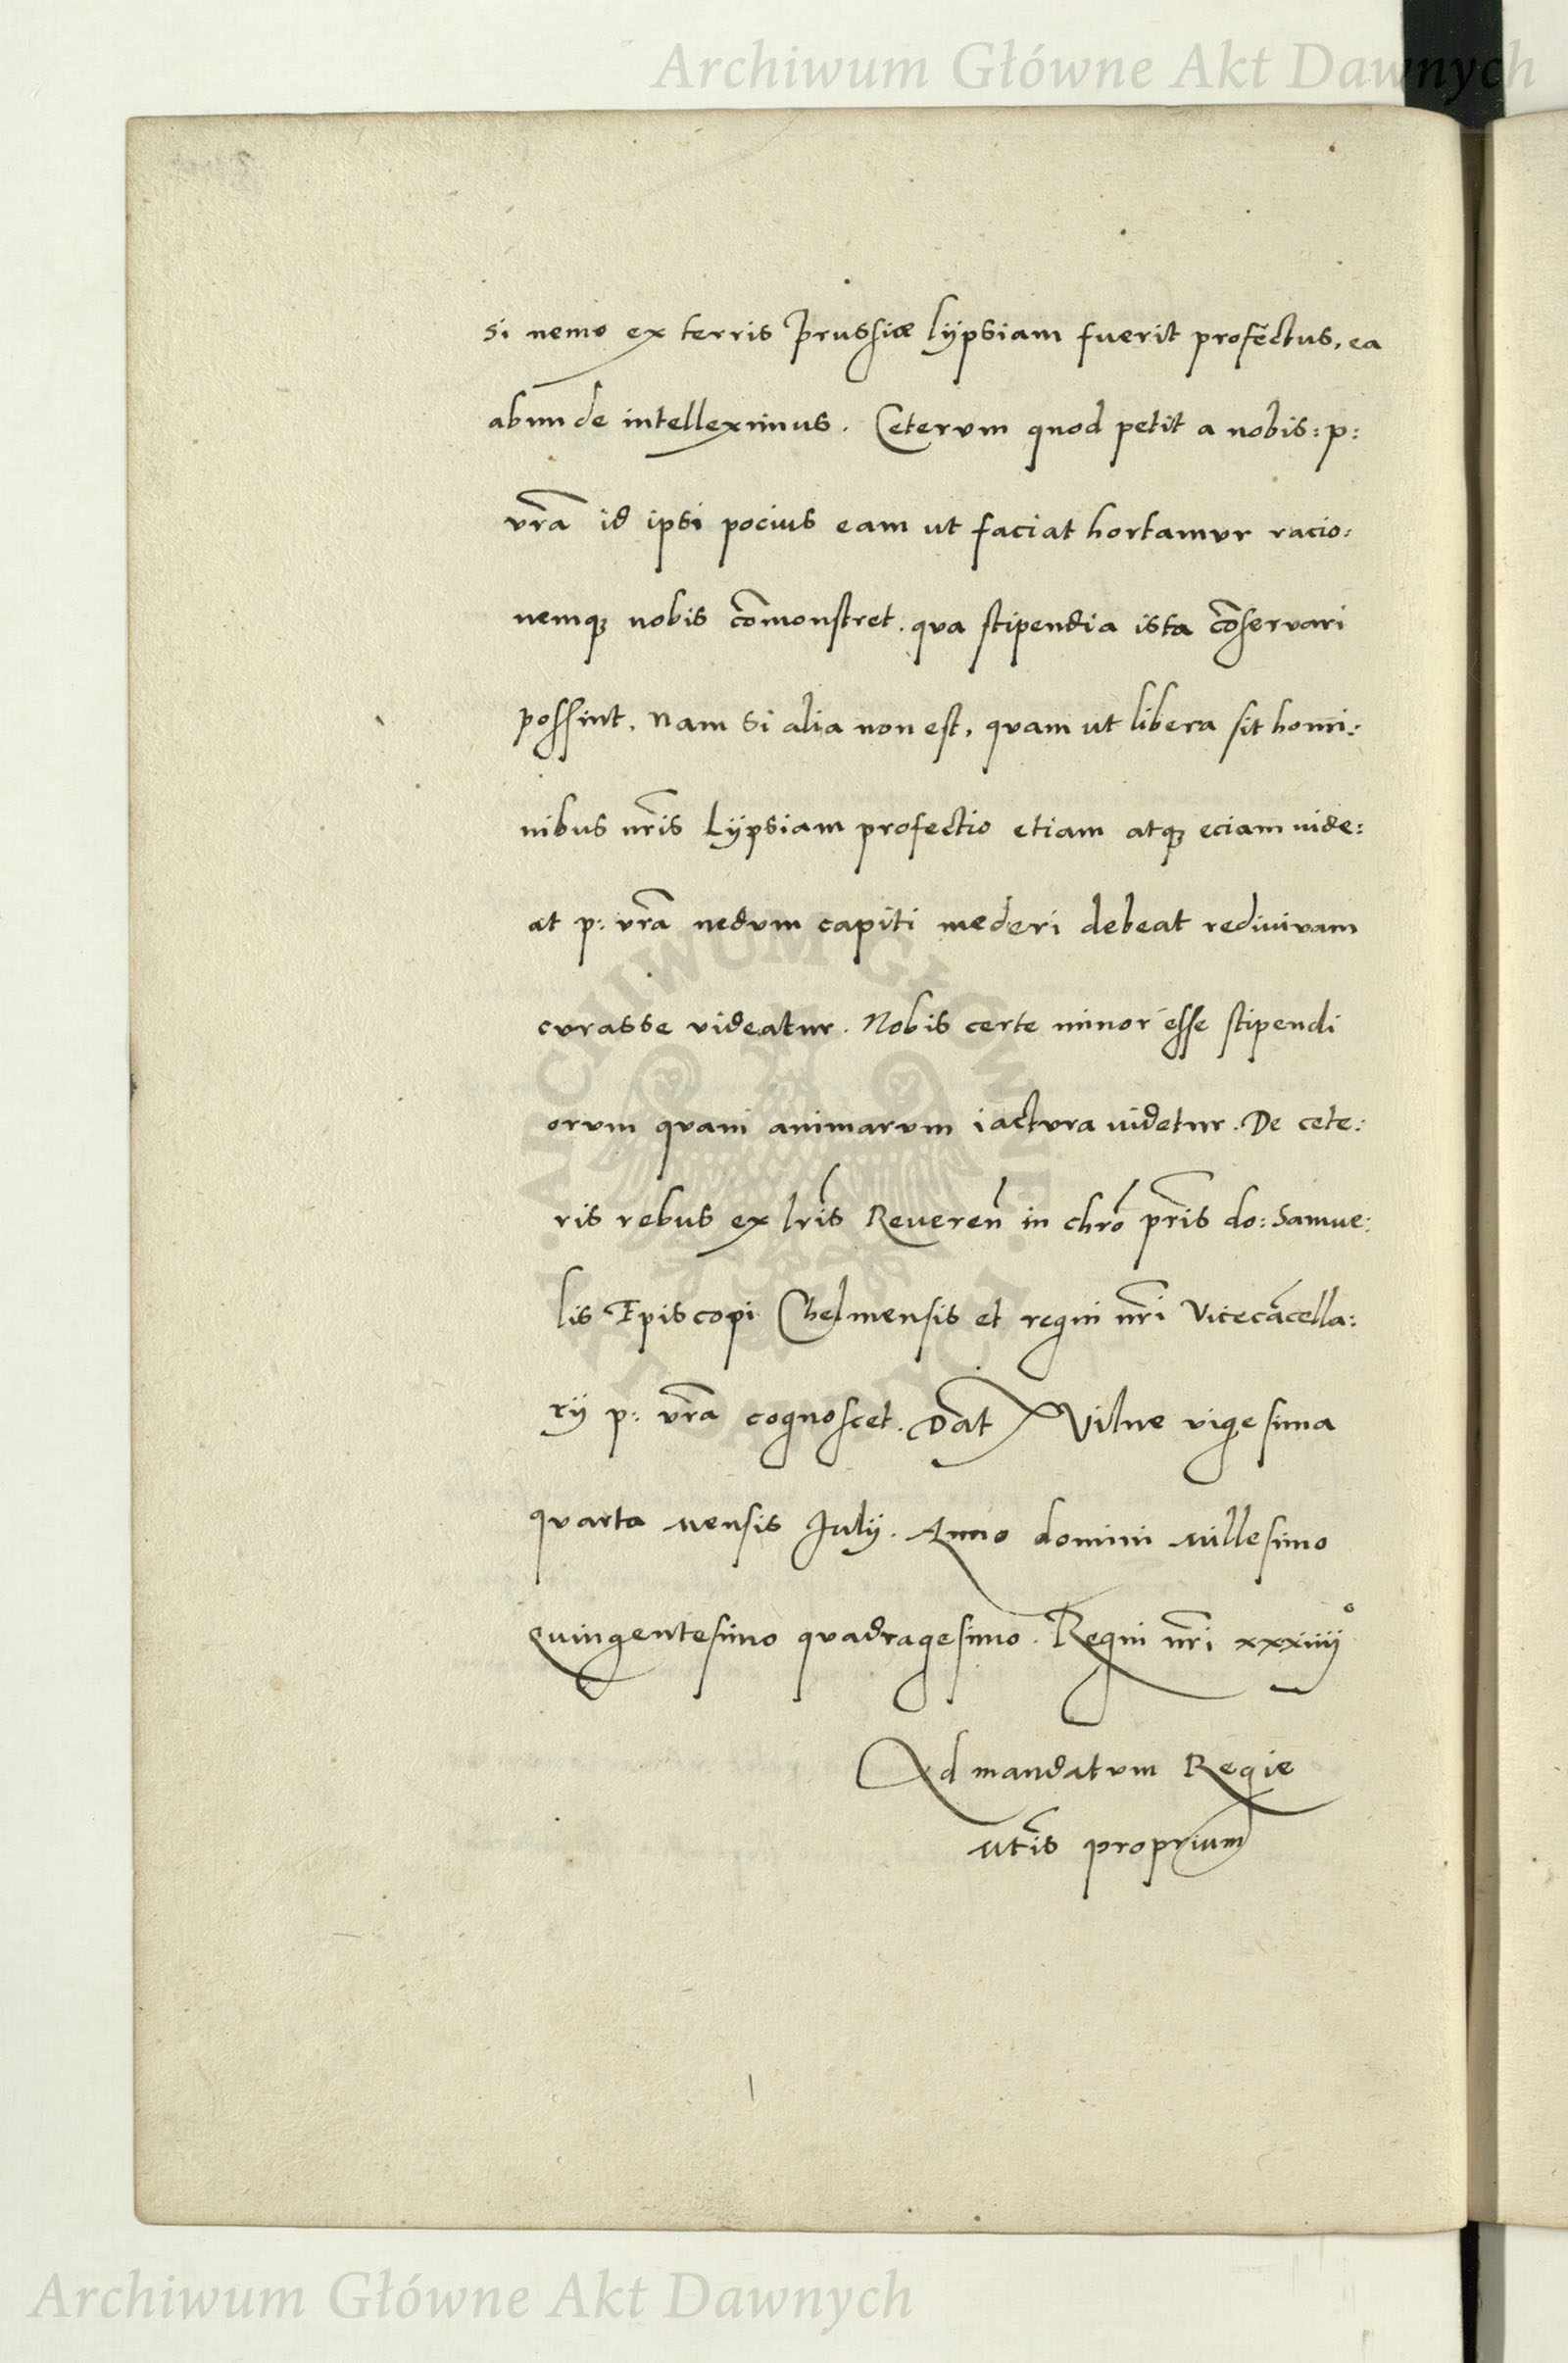 Archiwum Główne Akt Dawnych
si nemo ex terris Prussiæ lypsiam fuerit profectus, ea
abunde intelleximus. Ceterum quod petit a nobis: p:
vrã id ipsi pocius eam ut faciat hortamur racio:
nemqꝫ nobis cõmonstret. qua stipendia ista cõservari
possint. Nam si alia non est, quam ut libera sit homi:
nibus nr̃is Lypsiam profectio etiam atqꝫ eciam vide:
at p: vrã nedum capiti mederi debeat redivivam
curasse videatur. Nobis certe minor esse stipendi
orum quam animarum iactura videtur. De cete:
ris rebus ex lr̃is Reveren̄ in chr̃o pr̃is do: Samue:
lis Episcopi Chelmensis et regni nr̃i Vicecãcella:
rÿ p: vrã cognoscet. Dat Vilne vigesima
quarta mensis Julÿ. Anno domini Millesimo
Quingentesimo quadragesimo. Regni nr̃i xxxiiij°
Ad mandatum Regie
Mt̃is proprium
ARCHIWUM GŁÓWNE AKT DAWNYCH
Archiwum Główne Akt Dawnych